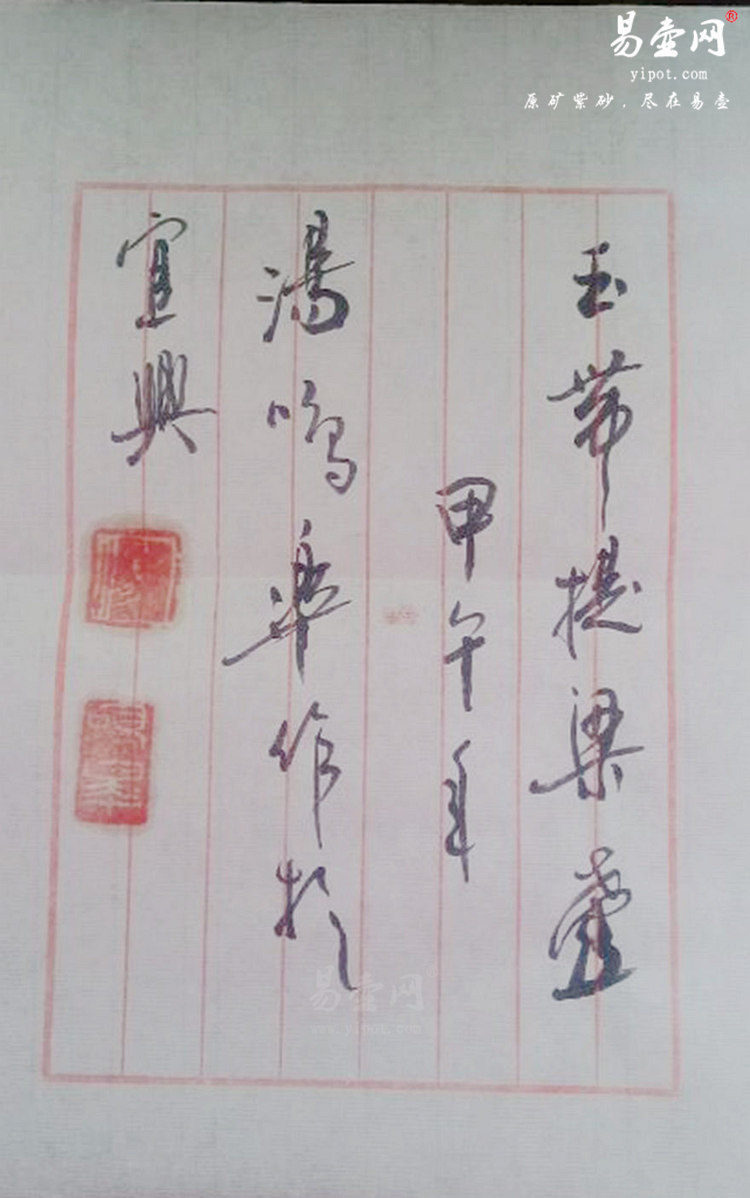 易壶网®
yipot.com
原矿紫砂，尽在易壶
玉带提梁壺
甲午年
湯鸣皋作於
宜興
易壶网
www.yipot.com